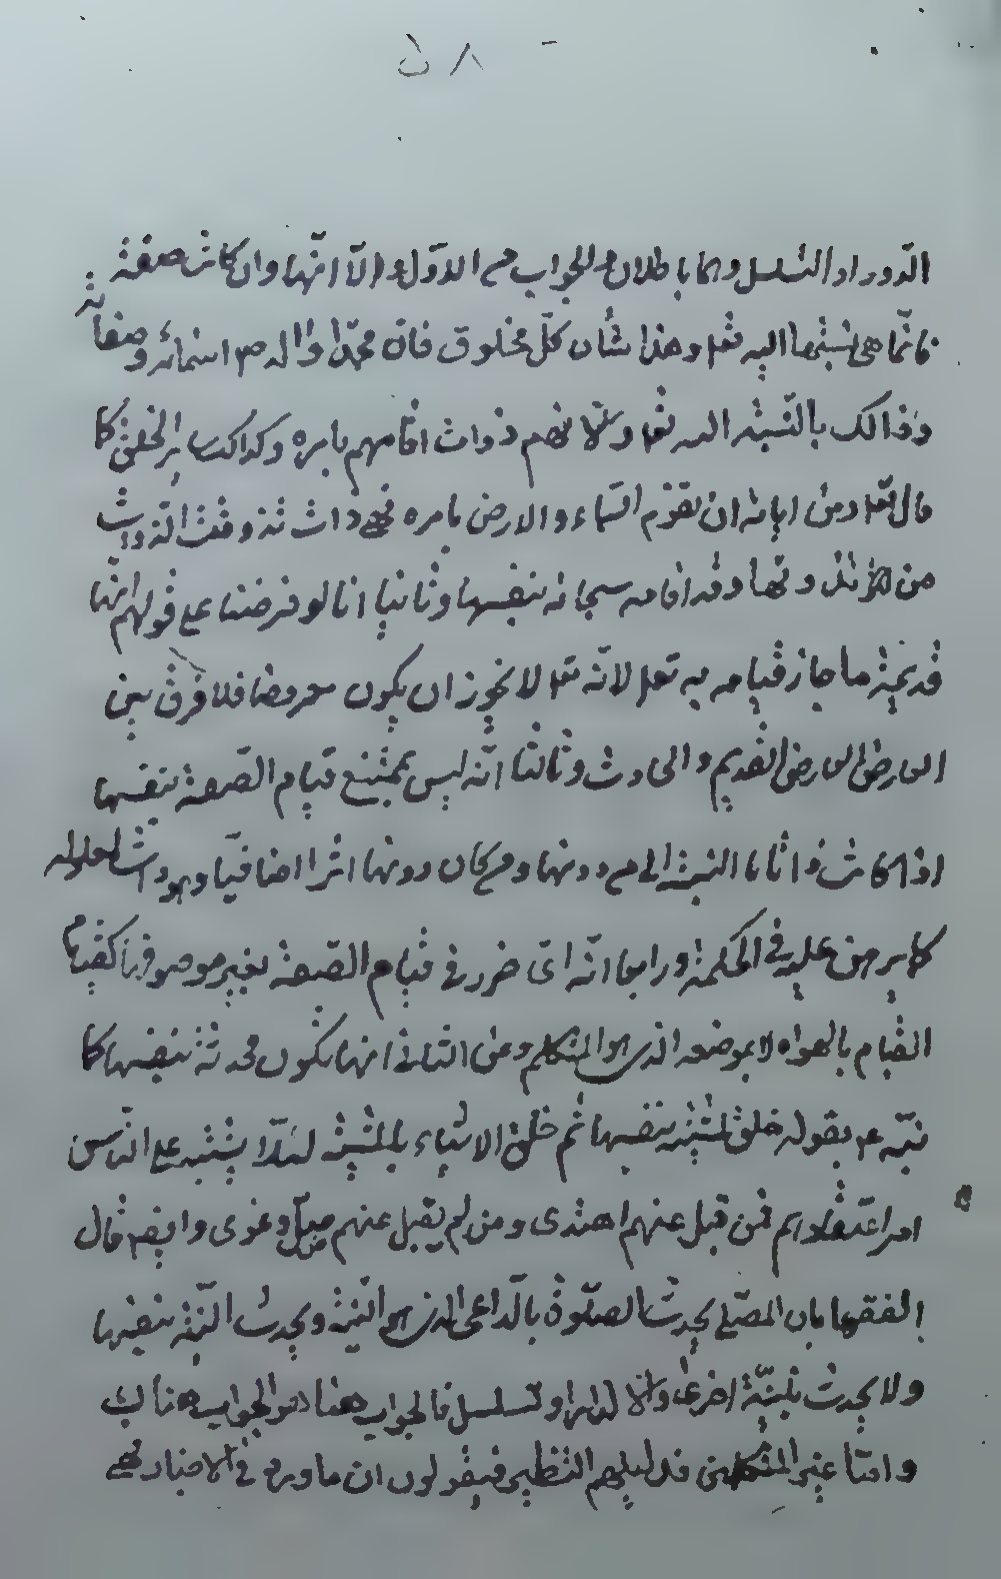 ٥٨
الدور او التسلسل وهما باطلان والجواب عن الاول اولا انها وان كانت صفة
فانما هي نسبتها اليه تعا وهذا شان كل مخلوق فان محمدا واله ص اسمائه وصفاته
وذالك بالنسبة اليه تعا والا فهم ذوات اقامهم بامره وكذالك ساير الخلق كما
قال تعا ومن اياته ان تقوم السماء والارض بامره فهي ذات تذوتت الذوات
من دونها وقد اقامه سبحانه بنفسها وثانيا انا لو فرضنا على قولهم انها
قديمة ما جاز قيامه به تعا لانه تعا لا يجوز ان يكون معروضا فلا فرق بين
العارض القديم والحادث وثالثا انه ليس بممتنع قيام الصفة بنفسها
اذا كانت ذاتا بالنسبة الى من دونها ومن كان دونها اثرا اضافيا
كما برهن عليه في الحكمة ورابعا انه اى ضرر في قيام الصفة بغير موصوفها كقيام
القيام بالهواء لا بموضعه الذى هو المتكلم وعن الثانى انها تكون محدثة بنفسها كما
نبه عم بقوله خلق المشية بنفسها ثم خلق الاشياء بالمشية لئلا يشتبه على الناس
امر اعتقادهم فمن قبل عنهم اهتدى ومن لم يقبل عنهم ضل وغوى وايضا قال
الفقها بان المصلى يحدث الصلوة بالداعى الذى هو النية ويحدث النية بنفسها
ولا يحدث بنية اخرى والا لدار او تسلسل فالجواب هنا هو الجواب هنالك
واما غير المتكلمين فدليلهم النظير فيقولون ان ما ورد في الاخبار فهى